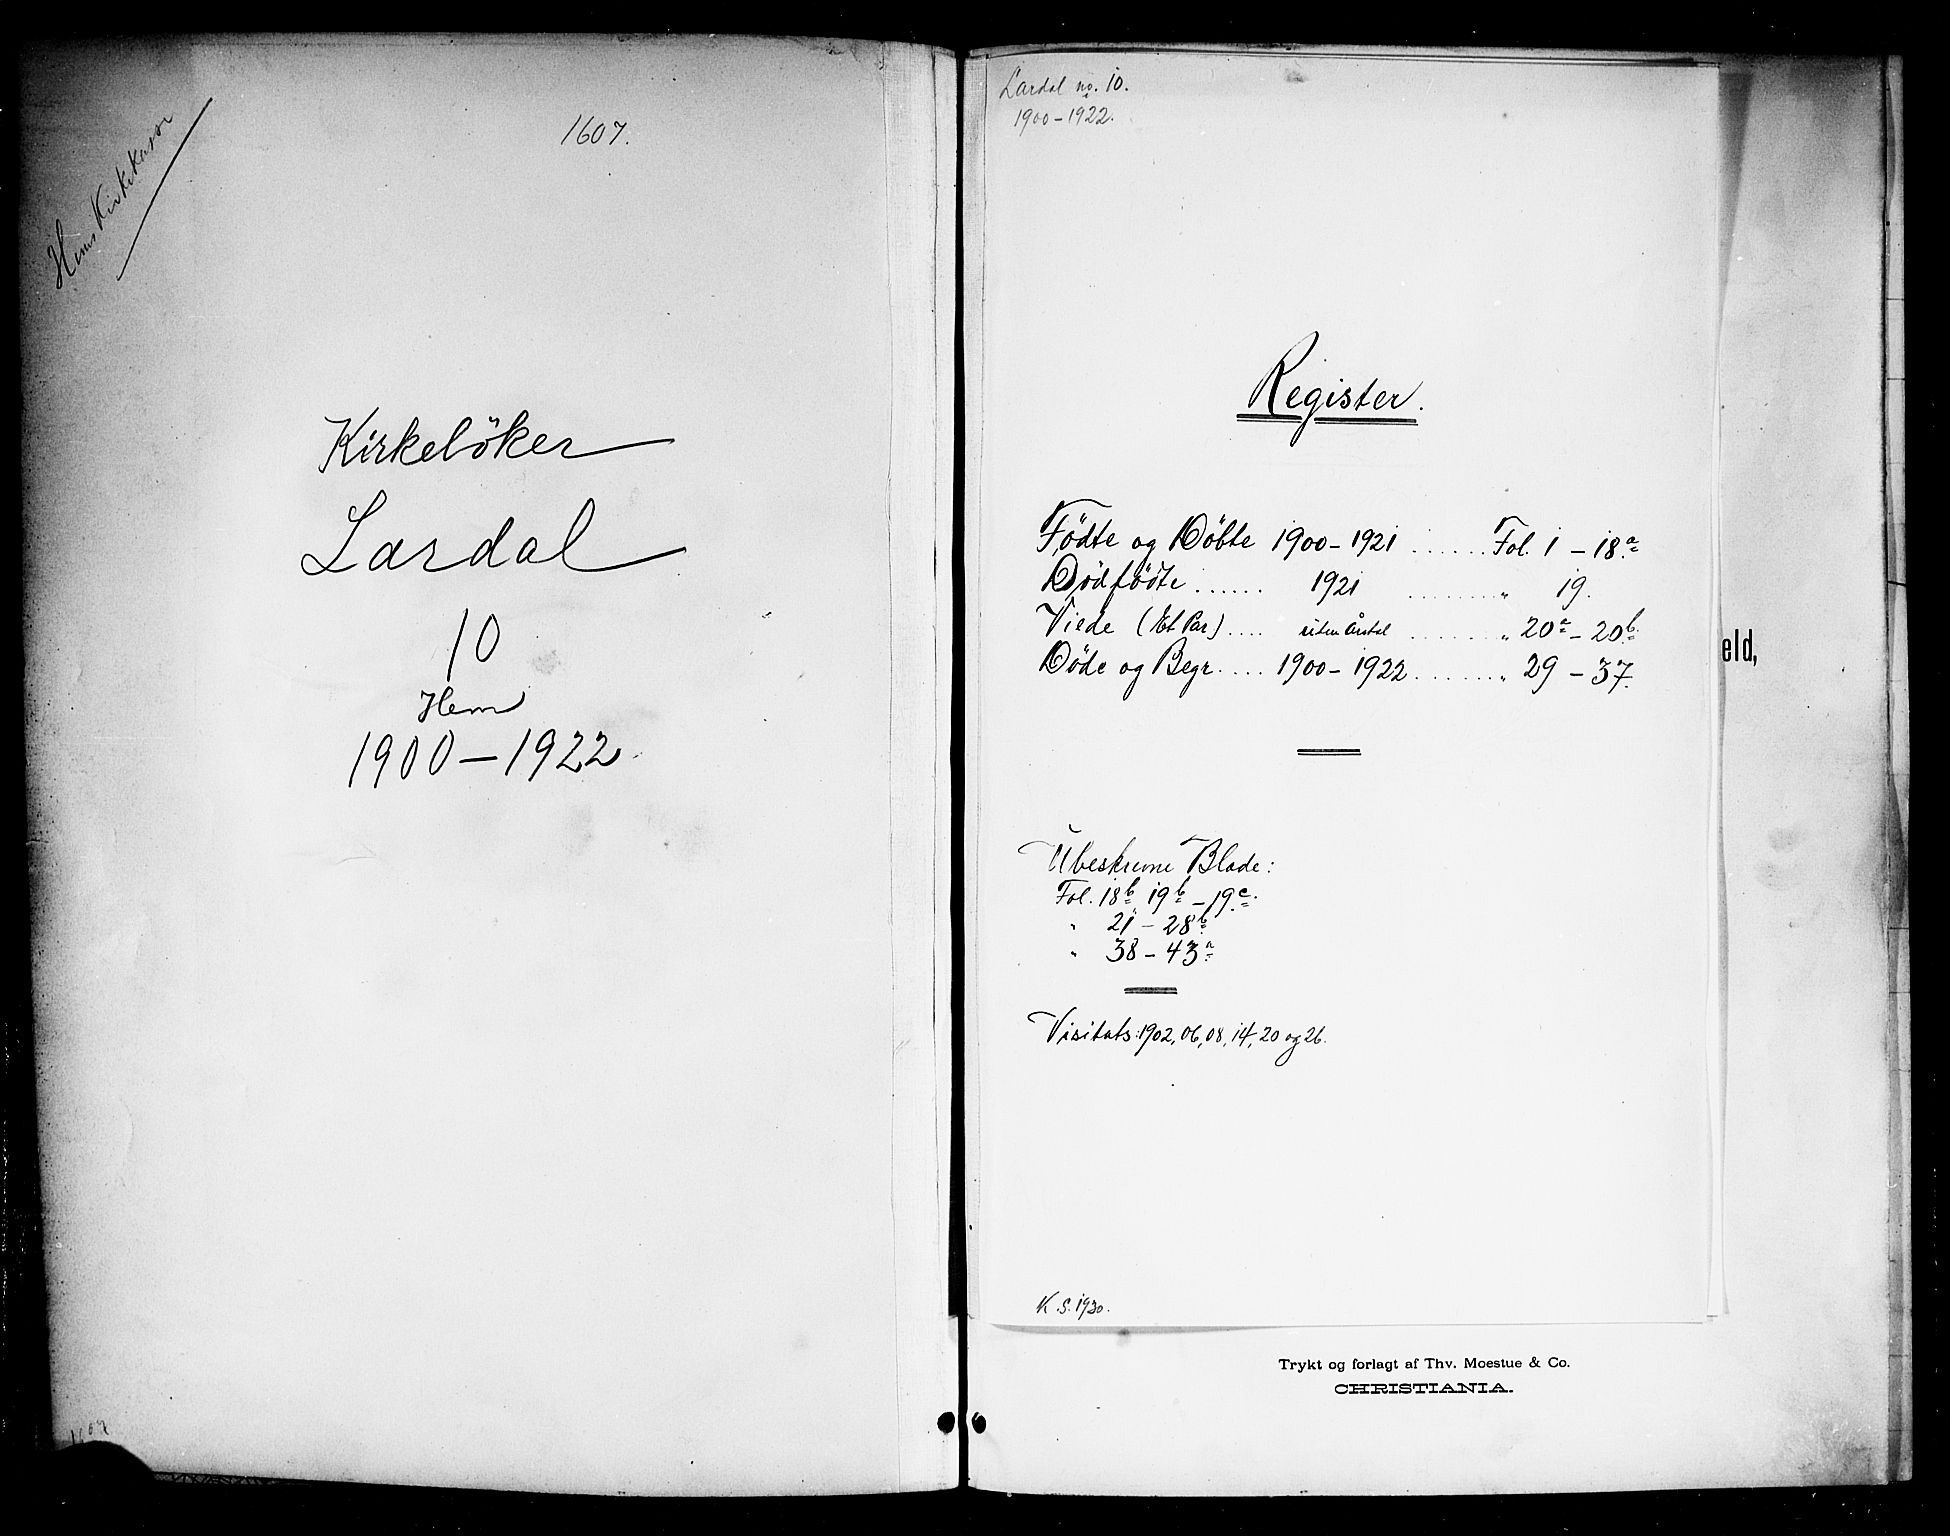 Hems Kirkekasse
1607.
Kirkeböker
Lardal
10
Hem
1900–1922
Lardal no. 10.
1900–1922.
Register.
Födte og Döbte 1900–1921 ...... Fol. 1 – 18a
Dödfödte ...... 1921 ........ „ 19.
Viede (Et Par) .... uten Årstal ....... „ 20a – 20b.
Döde og Begr. .... 1900–1922 ....... „ 29 – 37.
eld,
Ubeskrevne Blade:
Fol. 18b, 19b – 19c.
„ 21 – 28b
„ 38 – 43a
Visitats: 1902, 06, 08, 14, 20 og 26.
K.S. 1930.
Trykt og forlagt af Thv. Moestue & Co.
CHRISTIANIA.